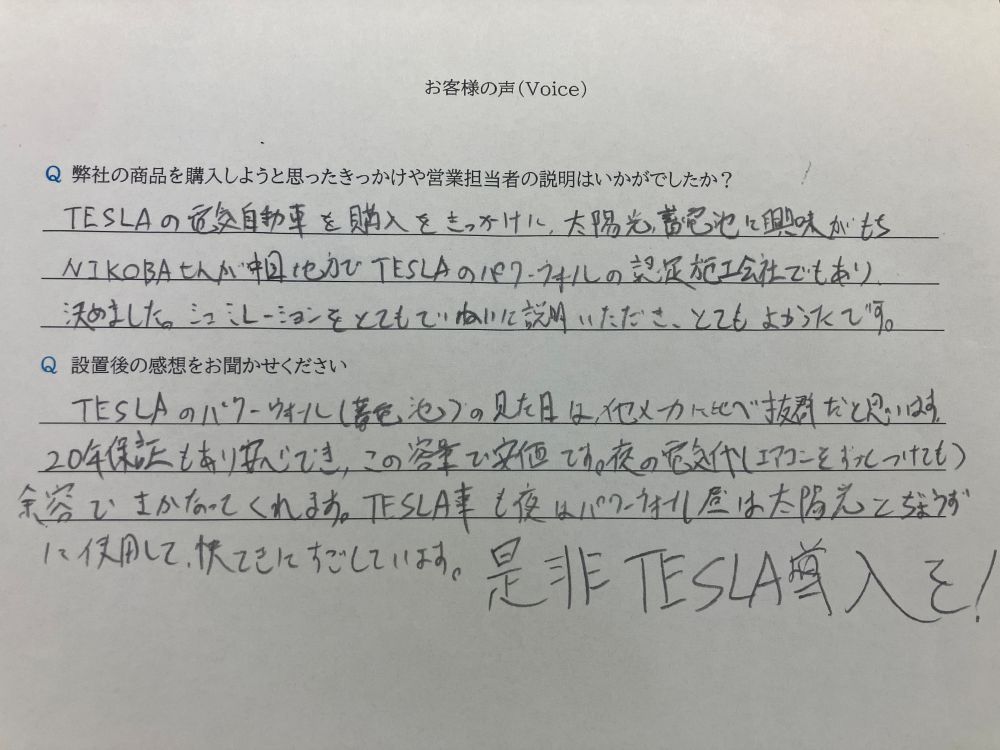 お客様の声(Voice)
Q 弊社の商品を購入しようと思ったきっかけや営業担当者の説明はいかがでしたか?
TESLAの電気自動車を購入をきっかけに、太陽光、蓄電池に興味がもち
NIKOBAさんが中国地方で TESLAのパワーウォールの認定施工会社でもあり
決めました。シュミレーションをとてもていねいに説明いただき、とてもよかったです。
Q 設置後の感想をお聞かせください
TESLAのパワーウォール(蓄電池)の見た目は、他メーカに比べ抜群だと思います。
20年保証もあり安心でき、この容量で安価です。夜の電気代(エアコンをずっとつけても)
余容でまかなってくれます。TESLA車も夜はパワーウォール昼は太陽光とじょうず
に使用して、快てきにすごしています。
是非TESLA導入を!